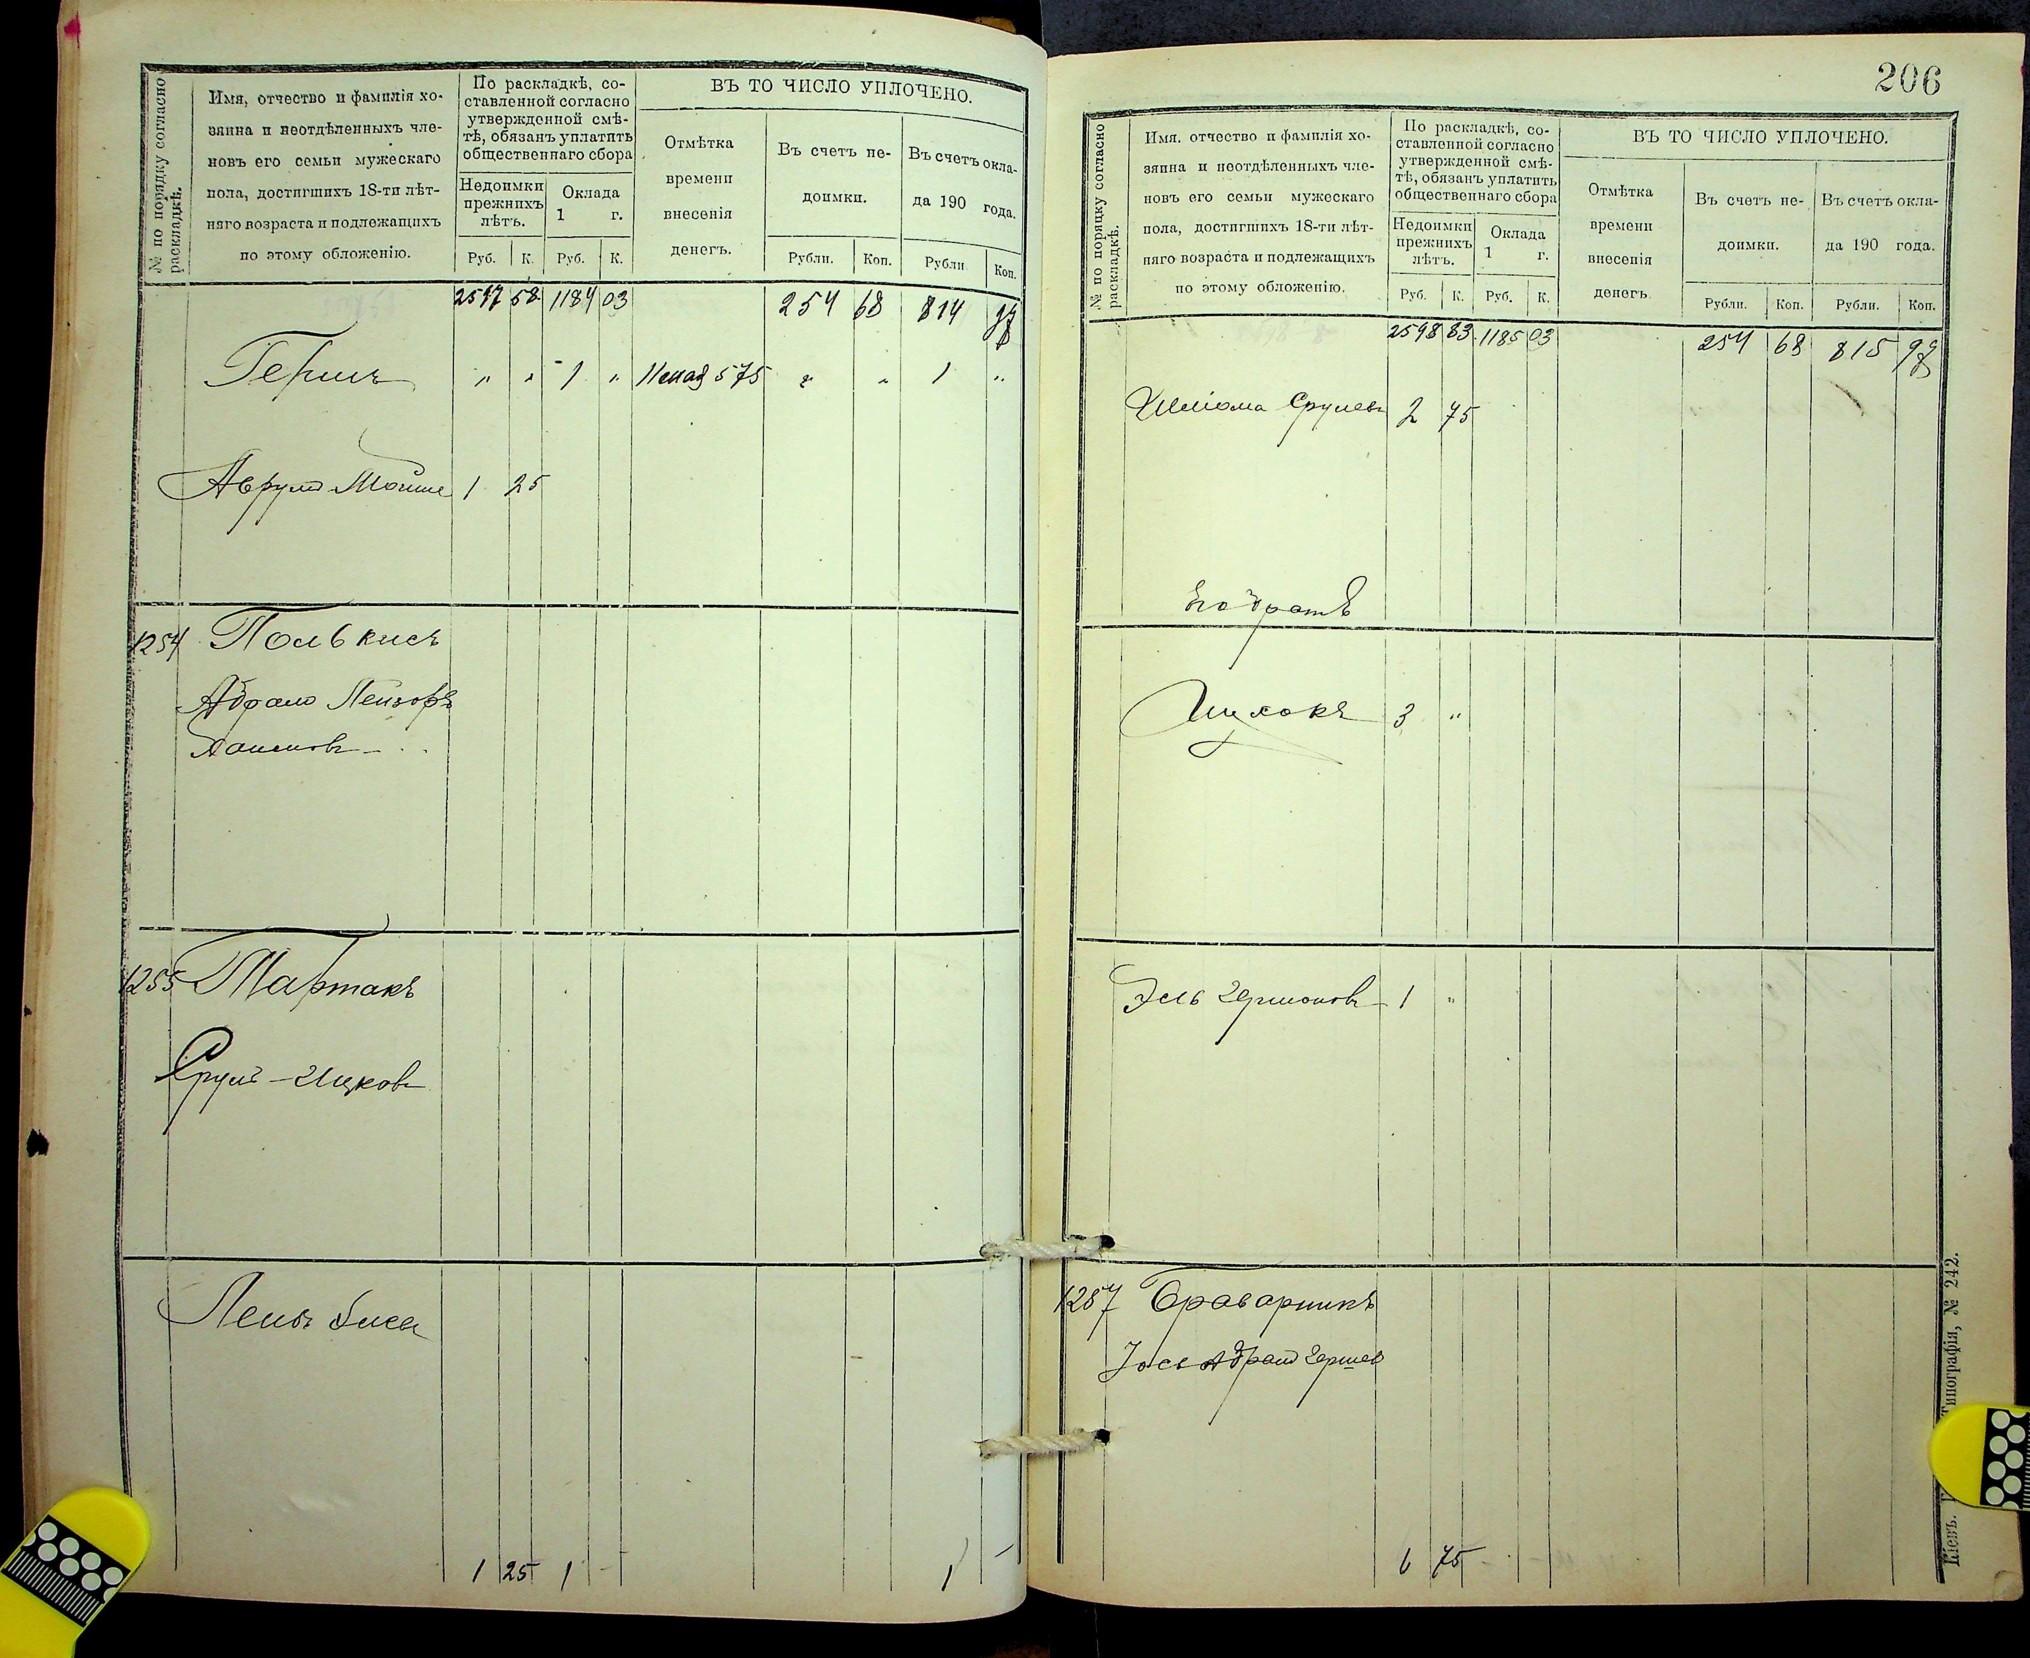 № по порядку согласно раскладкѣ.
Имя, отчество и фамилія хо-
зяина и неотдѣленныхъ чле-
новъ его семьи мужескаго
пола, достигшихъ 18-ти лѣт-
няго возраста и подлежащихъ
по этому обложенію.
По раскладкѣ, со-
ставленной согласно
утвержденной смѣ-
тѣ, обязанъ уплатить
общественнаго сбора
Недоимки
прежнихъ
лѣтъ.
Оклада
1 г.
Руб. К. Руб. К.
ВЪ ТО ЧИСЛО УПЛОЧЕНО.
Отмѣтка
времени
внесенія
денегъ.
Въ счетъ не-
доимки.
Рубли. Коп.
Въ счетъ окла-
да 190 года.
Рубли Коп.
2597 58 1184 03 254 68 814
Гершъ " " 1 " 575 " " 1 "
Аврумъ Мошие 1 25
1254 Полькисъ
Абрамъ Лейзоръ
1255 Тартакъ
Сруль-Ицковъ
1 25 1 - 1 -
206
№ по порядку согласно раскладкѣ.
Имя. отчество и фамилія хо-
зяина и неотдѣленныхъ чле-
новъ его семьи мужескаго
пола, достигшихъ 18-ти лѣт-
няго возраста и подлежащихъ
по этому обложенію.
По раскладкѣ, со-
ставленной согласно
утвержденной смѣ-
тѣ, обязанъ уплатить
общественнаго сбора
Недоимки
прежнихъ
лѣтъ.
Оклада
1 г.
Руб. К. Руб. К.
ВЪ ТО ЧИСЛО УПЛОЧЕНО.
Отмѣтка
времени
внесенія
денегъ.
Въ счетъ не-
доимки.
Рубли. Коп.
Въ счетъ окла-
да 190 года.
Рубли. Коп.
2598 83 1185 03 254 68 815
Шлiома Срулевъ 2 75
Его братъ
Ицхокъ 3 "
Эль Гершоновъ 1 "
1257 Броварникъ
Іось Абрамъ Гершов
6 75 -
Кіевъ. Типографія, № 242.